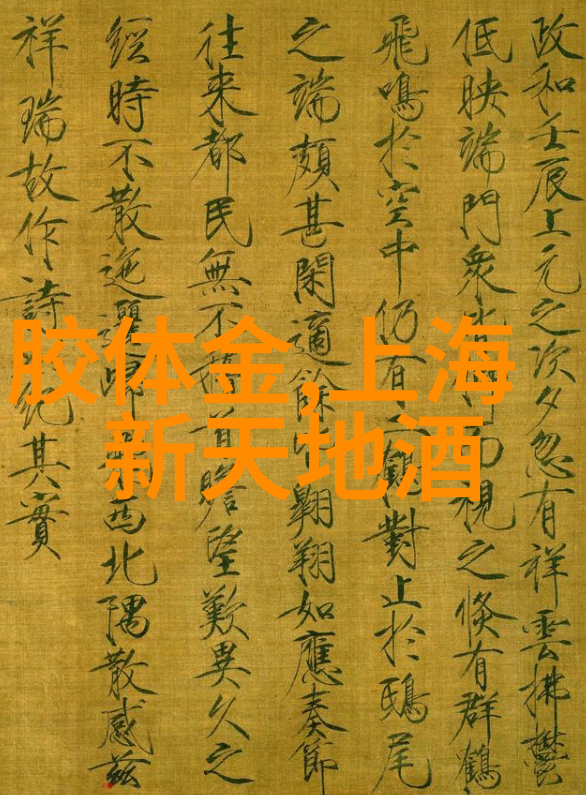 政和壬辰上元之次夕忽有祥雲拂鬱
低映端門眾皆仰而視之倏有群鶴
飛鳴於空中仍有鶴對止於鴟尾
之端頗甚閑適餘皆翱翔如應奏節
往來都民無不稽首瞻望歎異久之
經時不散迤邐歸西北隅散感茲
祥瑞故作詩紀其實
胶体金,上海
新天地酒